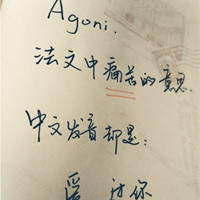 Agoni.
法文中痛苦的意思.
中文发音却是：
爱过你